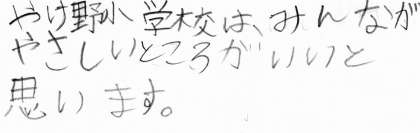 やけ野小学校は、みんなが
やさしいところがいいと
思います。